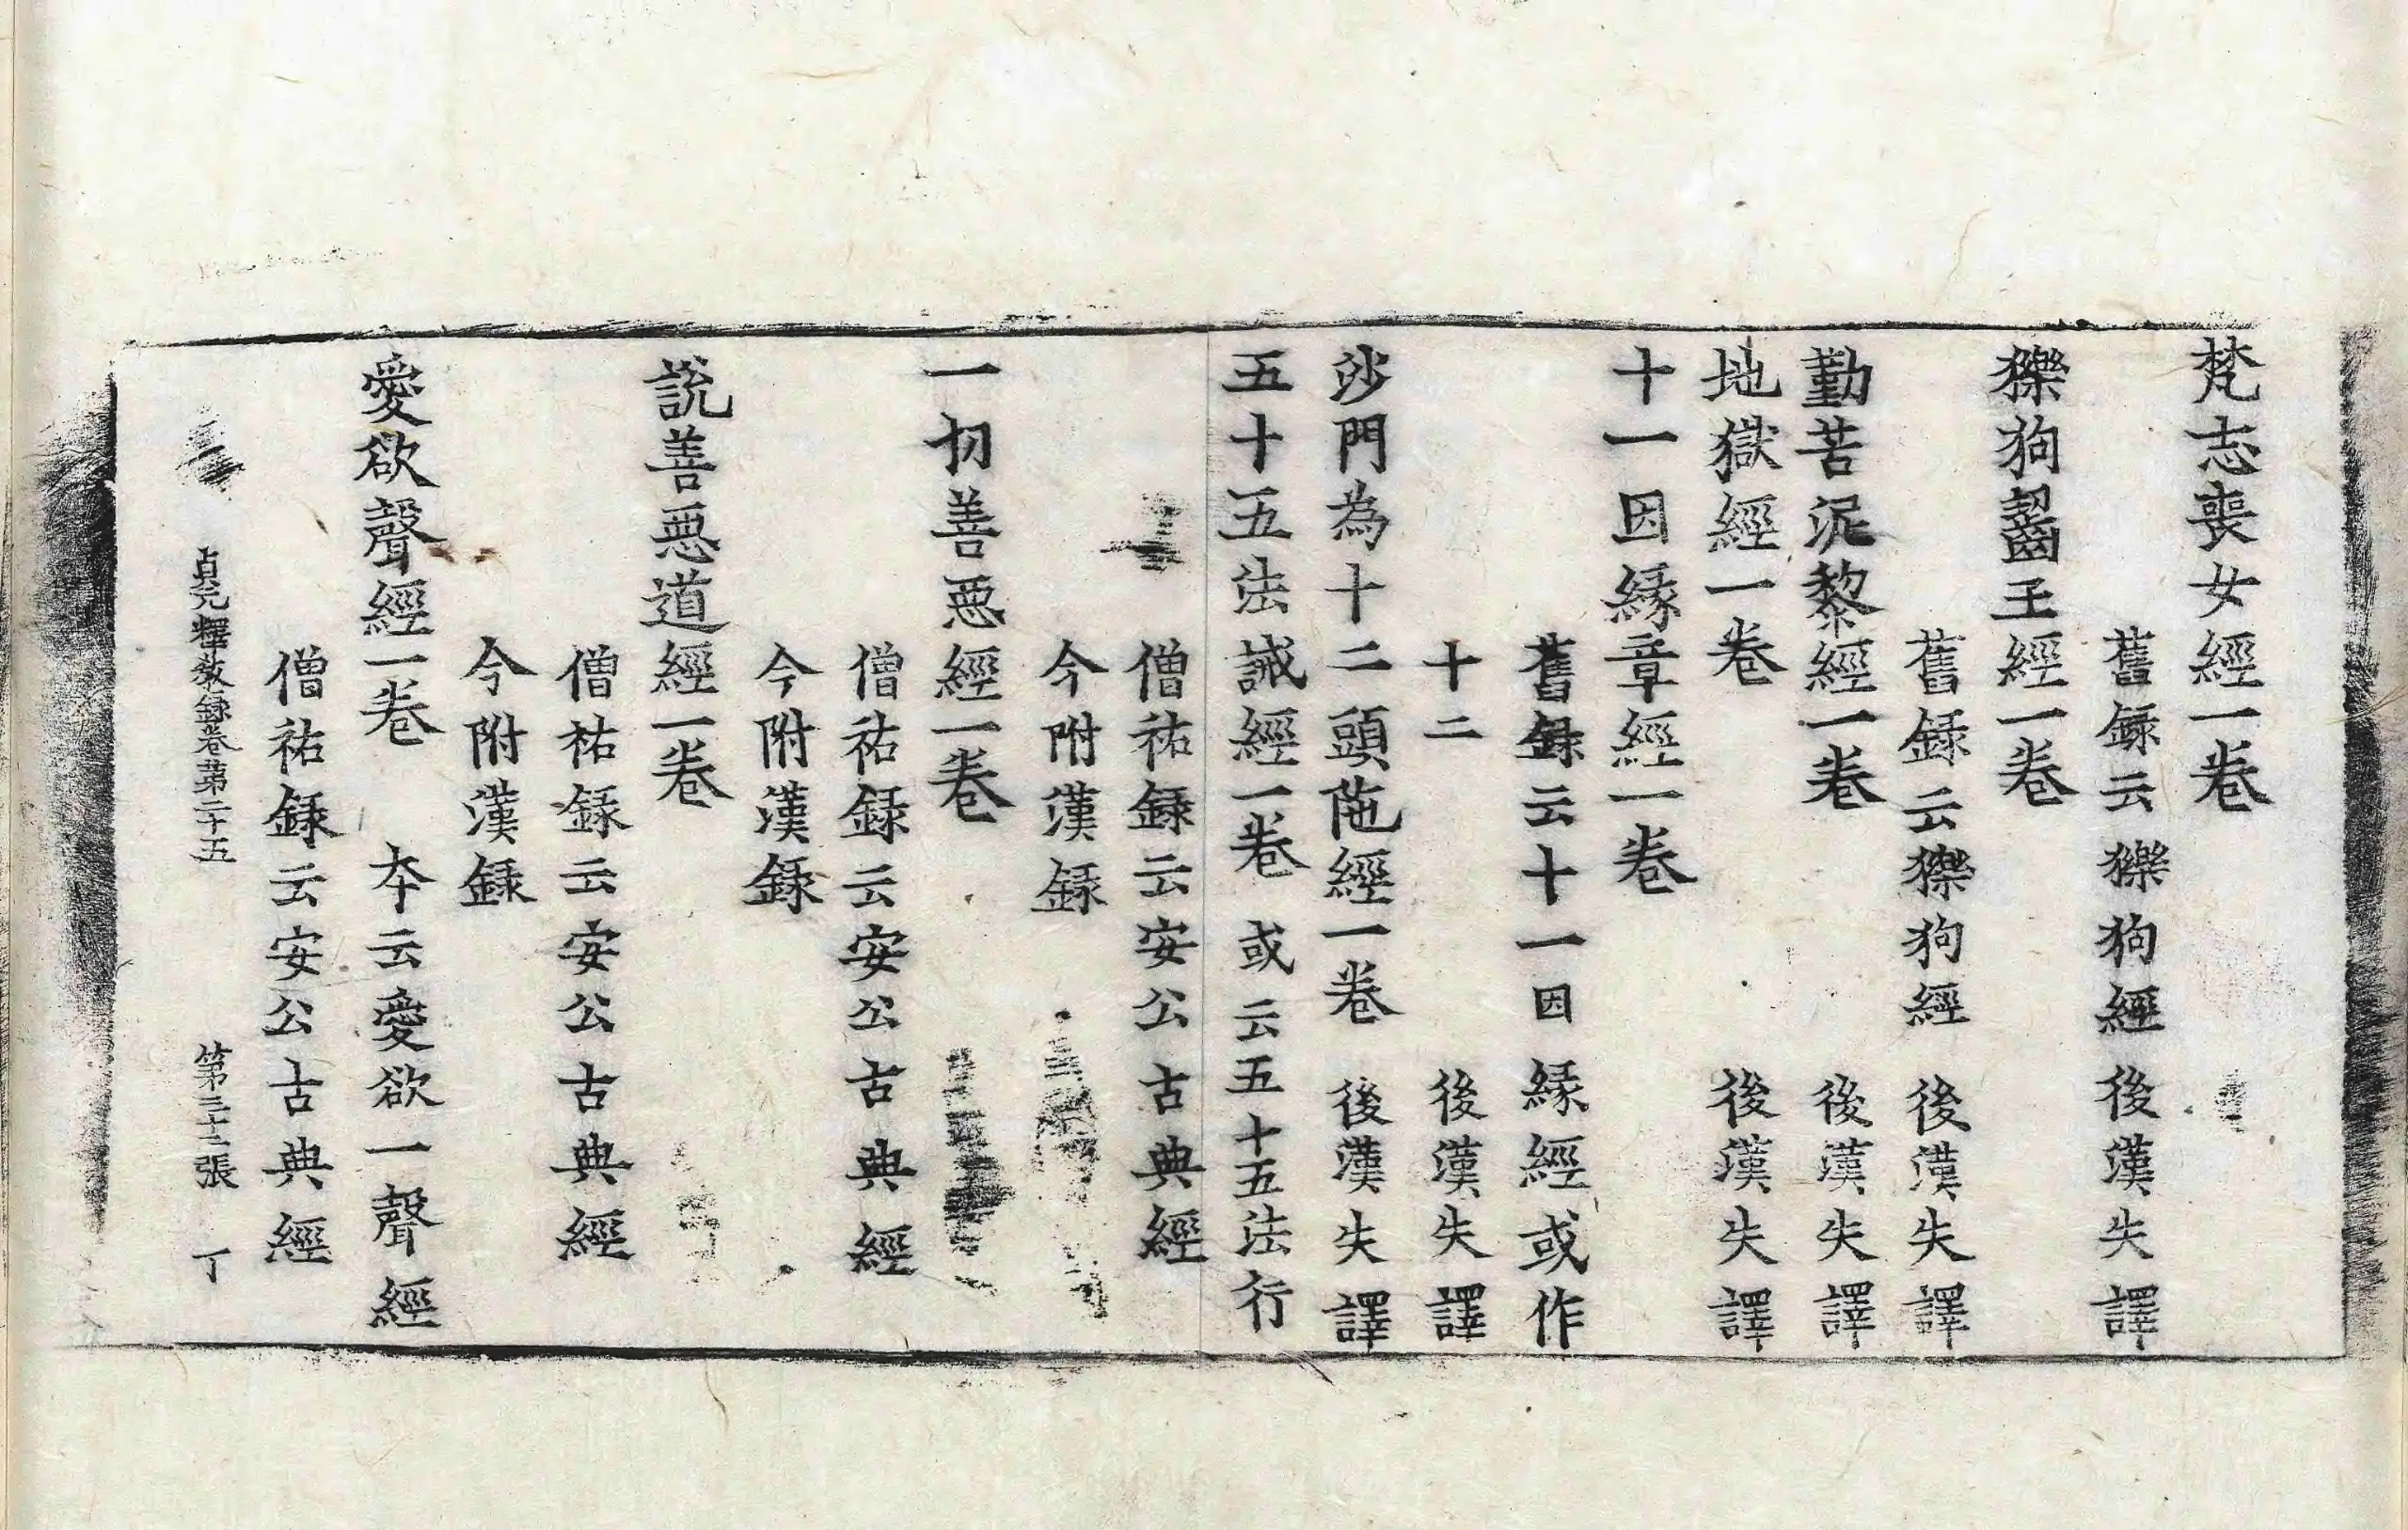 梵志喪女經一卷
舊録云㺿狗經後漢失譯
㺿狗齧王經一卷
舊録云㺿狗經後漢失譯
勤苦泥黎經一卷後漢失譯
地獄經一卷後漢失譯
十一因縁章經一卷
舊録云十一因縁經或作
十二後漢失譯
沙門為十二頭陁經一卷後漢失譯
五十五法誡經一卷或云五十五法行
僧祐録云安公古典經
今附漢録
一切善惡經一卷
僧祐録云安公古典經
今附漢録
説善惡道經一卷
僧祐録云安公古典經
今附漢録
愛欲聲經一卷本云愛欲一聲經
僧祐録云安公古典經
貞元釋教録卷第二十五 第三十二張 丁